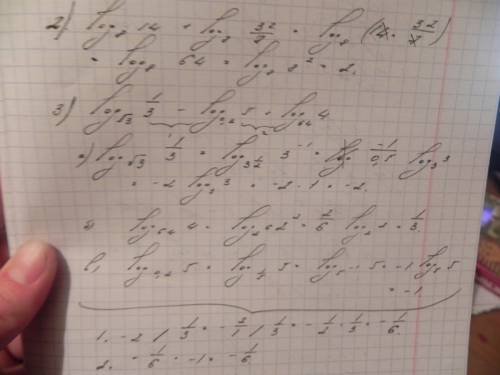 2) log₈ 14 + log₈ 32/7 = log₈ (14 · 32/7)
= log₈ 64 = log₈ 8² = 2.
3) log_√3 1/3 - log₀,₂ 5 · log₆₄ 4
a) log_√3 1/3 = log_3^1/2 3⁻¹ = -1/0,5 log₃ 3
= -2 log₃ 3 = -2 · 1 = -2.
log₆₄ 4 = log₂6 2² = 2/6 log₂ 2 = 1/3.
в) log₀,₂ 5 = log_1/5 5 = log₅⁻¹ 5 = -1 log₅ 5
= -1
1. -2 / 1/3 = -2/1 / 1/3 = -1/2 · 1/3 = -1/6.
2. -1/6 · -1 = -1/6.